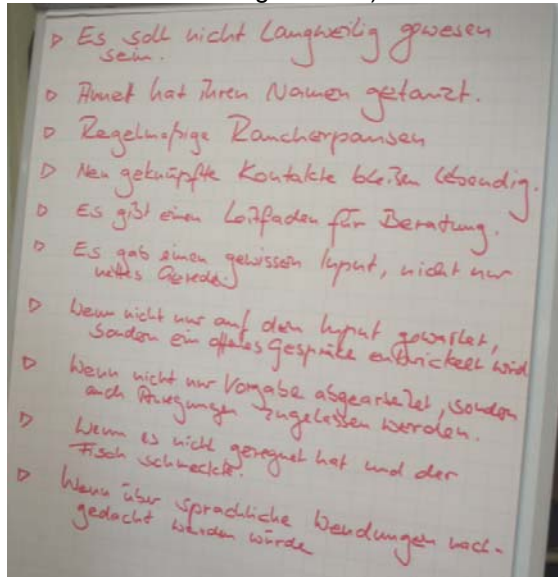 ▷ Es soll nicht Langweilig gewesen
sein.
▷ Annet hat ihren Namen getanzt.
▷ Regelmäßige Raucherpausen
▷ Neu geknüpfte Kontakte bleiben lebendig.
▷ Es gibt einen Leitfaden für Beratung.
▷ Es gab einen gewissen Input, nicht nur
nettes Gerede.
▷ Wenn nicht nur auf den Input gewartet,
sondern ein offenes Gespräch entwickelt wird
▷ Wenn nicht nur Vorgabe abgearbeitet, sondern
auch Anregungen zugelassen werden.
▷ Wenn es nicht geregnet hat und der
Fisch schmeckte.
▷ Wenn über sprachliche Wendungen nach-
gedacht werden würde